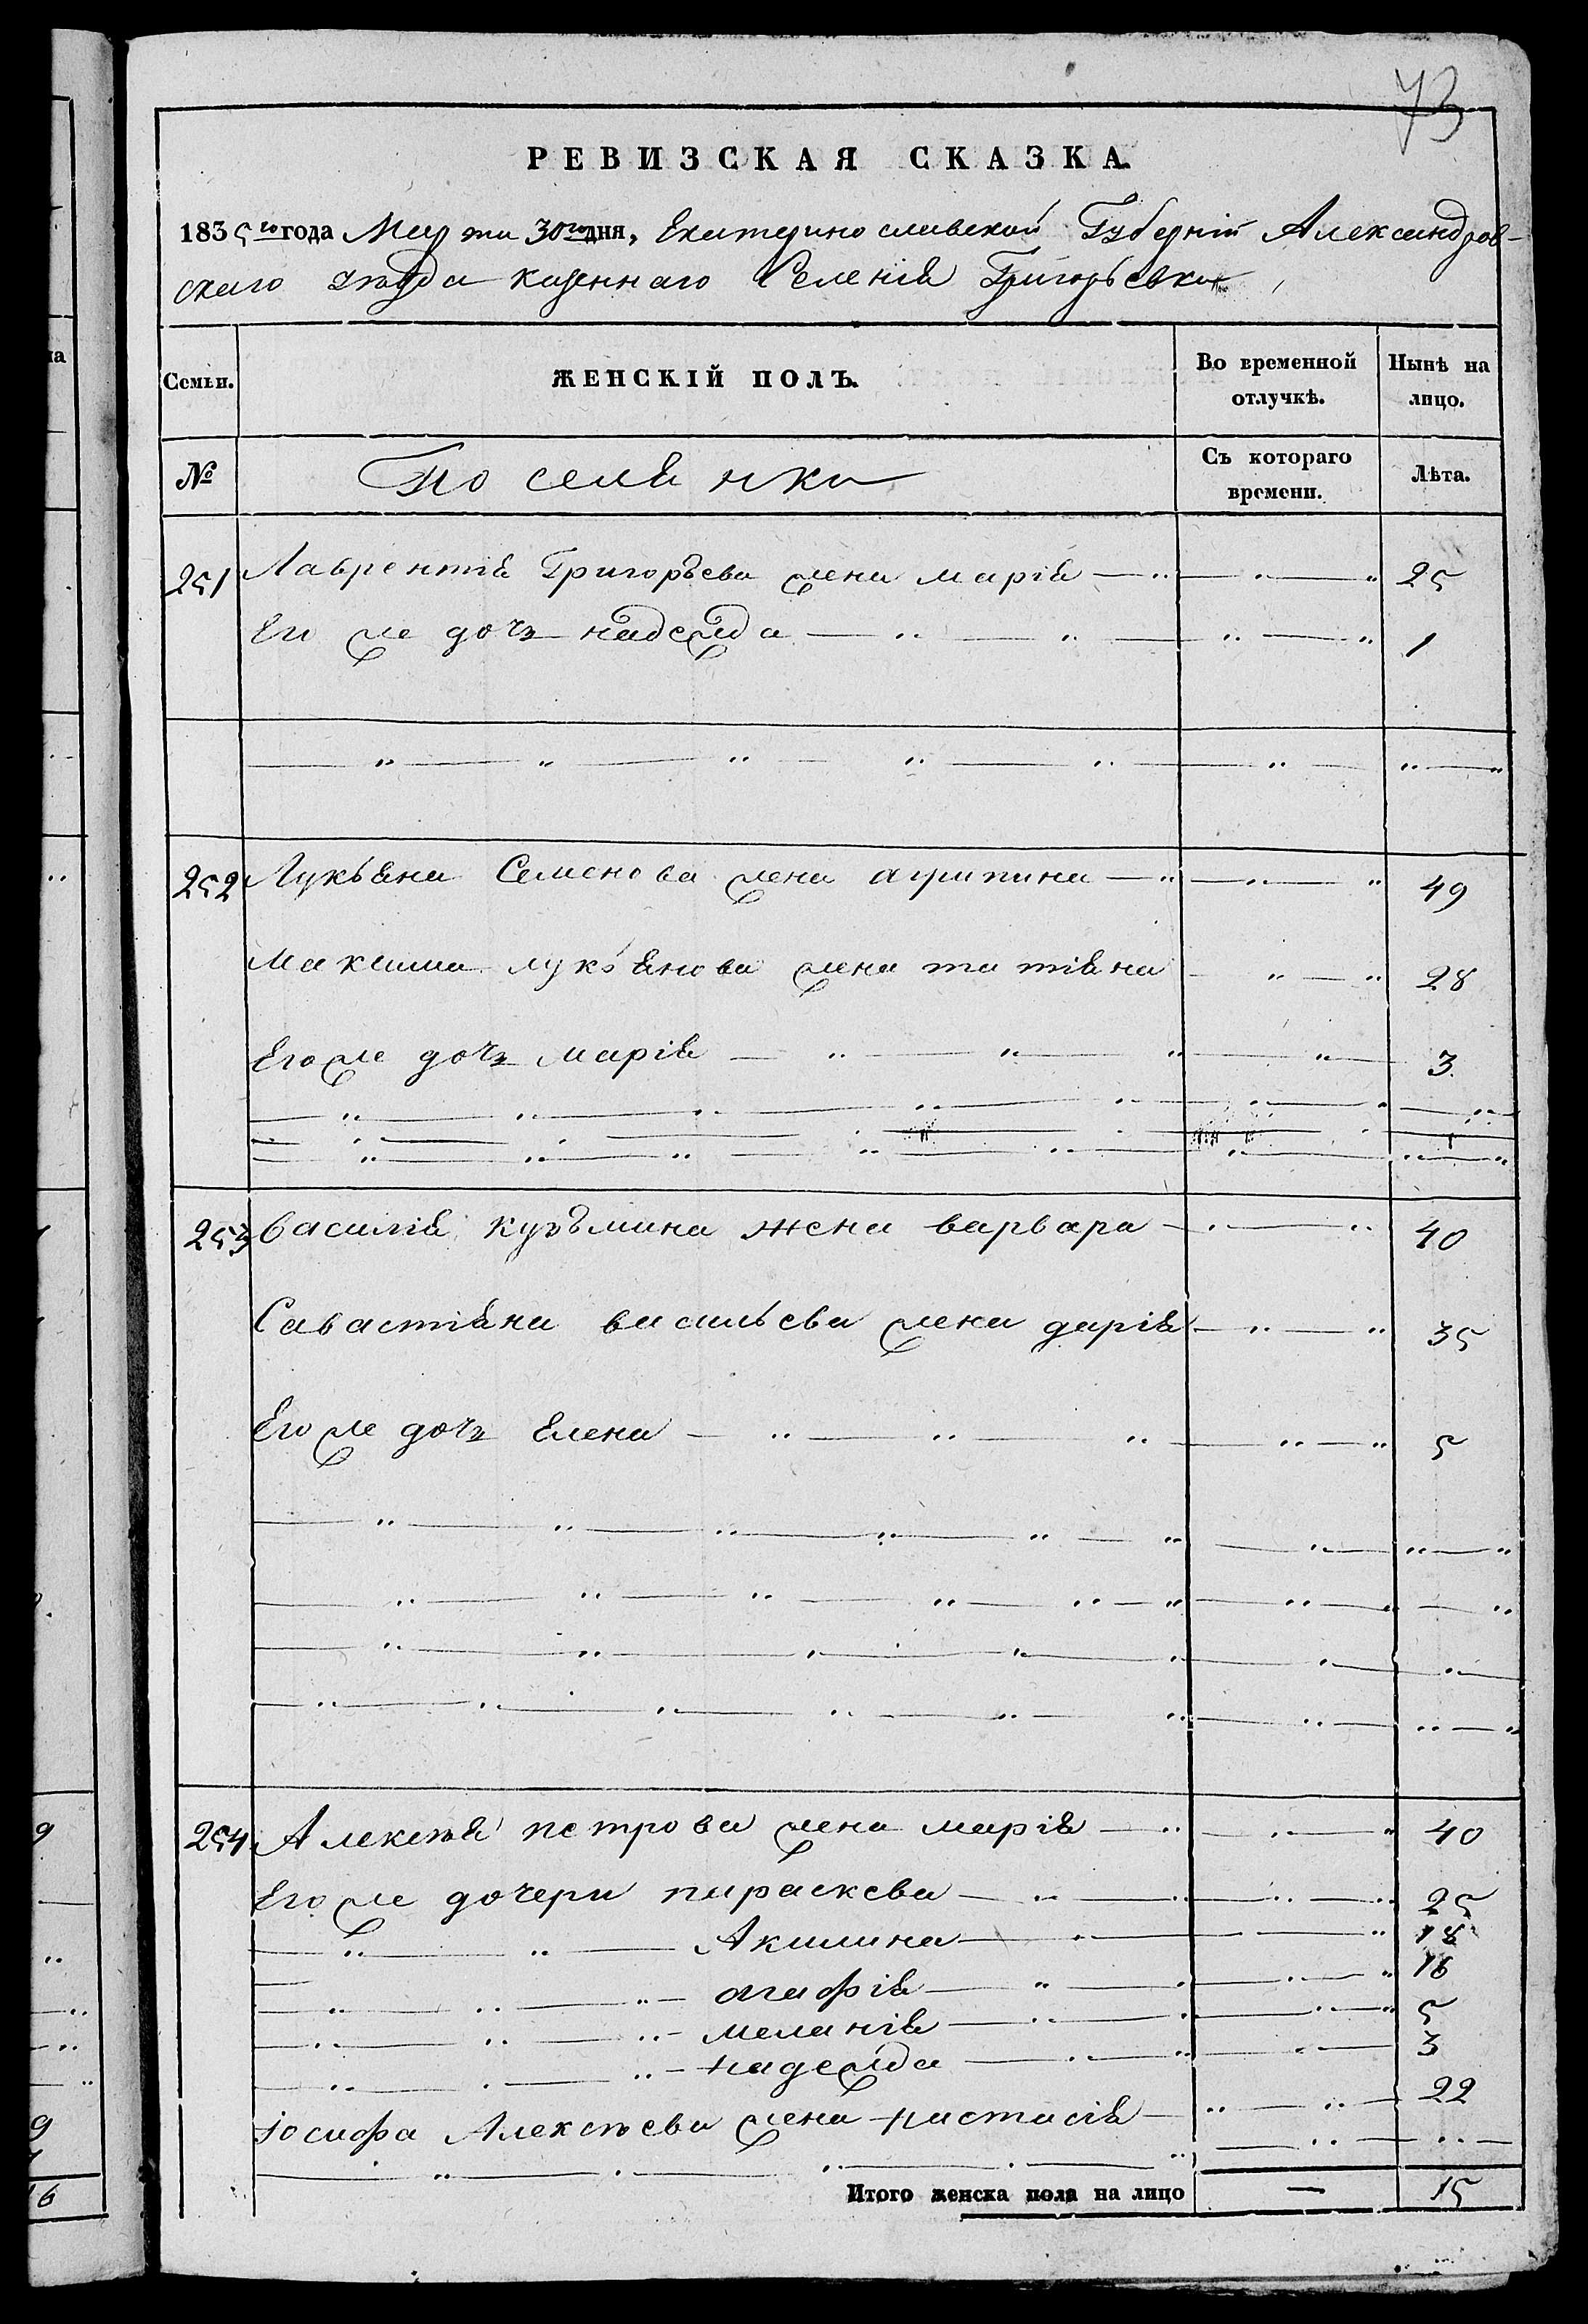 73
РЕВИЗСКАЯ СКАЗКА.
1835го года Марта 30го дня, Екатеринославской Губерніи Александров-
скаго уѣзда казеннаго Селенія Григорьевки
Семьи. ЖЕНСКІЙ ПОЛЪ. Во временной отлучкѣ. Нынѣ на лицо.
№ Поселянки Съ котораго времени. Лѣта.
251 Лаврентія Григорьева жена марія 25
Его же дочь надежда 1
252 Лукъяна Семенова жена агрипина 49
Максима лукъянова жена татіяна 28
Его же дочь марія 3
253 василія кузьмина жена варвара 40
Савастіяна васильева жена дарія 35
Его же дочь Елена 5
254 Алексѣя петрова жена марія 40
Его же дочери параскева 25
Акилина 18
агафія 16
меланія 5
надежда 3
іосифа Алексѣева жена настасія 22
Итого женска пола на лицо — 15